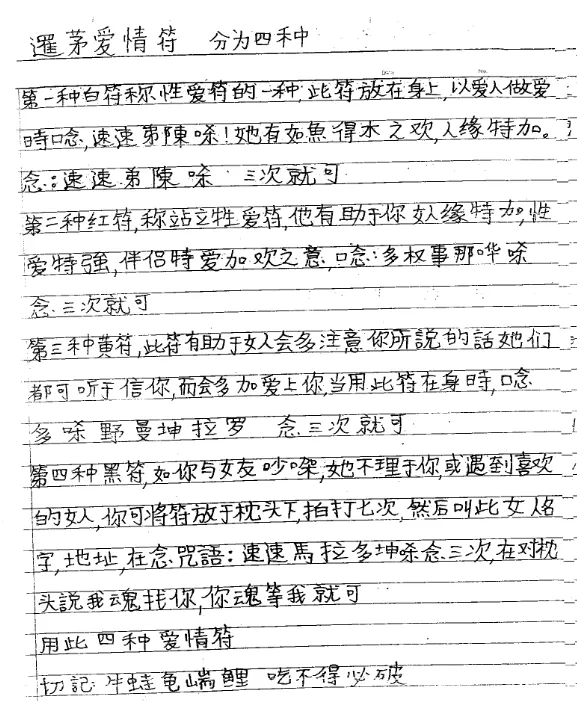 暹茅爱情符 分为四种
第一种白符称性爱符的一种,此符放在身上,以爱人做爱
時唸,速速弟陳唏!她有如魚得水之欢,人缘特加。
念:速速弟陳唏 三次就可
第二种红符,称站立性爱符,他有助于你女人缘特加,性
爱特強,伴侣特爱加欢之意,口唸:多权事那哗唏
念三次就可
第三种黄符,此符有助于女人会多注意你所說的話她们
都可听于信你,而会多加爱上你,当用此符在身時,唸
多唏野曼坤拉罗 念三次就可
第四种黑符,如你与女友吵架,她不理于你,或遇到喜欢
的女人,你可将符放于枕头下,拍打七次,然后叫此女人名
字,地址,在念咒語:速速馬拉多坤唏念三次,在对枕
头說我魂找你,你魂等我就可
用此四种爱情符
切記:牛蛙龟 鲤 吃不得必破